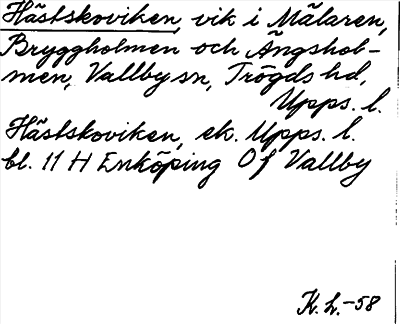 Hästskoviken, vik i Mälaren,
Bryggholmen och Ängshol-
men, Vallby sn, Trögds hd,
Upps. l.
Hästskoviken, ek. Upps. l.
bl. 11 H Enköping Of Vallby
K. L. -58